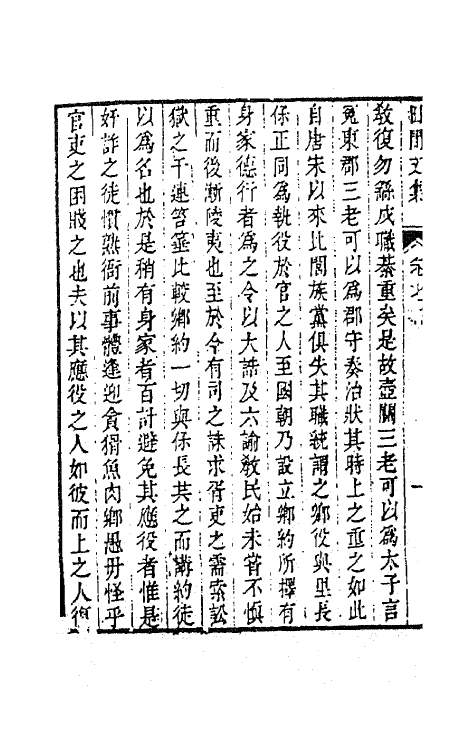 教復勿繇戍職綦重矣是故壺關三老可以為太子言
冤東郡三老可以為郡守奏治狀其時上之重之如此
自唐宋以來比閭族黨俱失其職統謂之鄉役與里長
保正同為執役於官之人至國朝乃設立鄉約所擇有
身家德行者為之令以大誥及六諭教民始未甞不慎
重而後漸陵夷也至於今有司之誅求胥吏之需索訟
獄之干連笞箠比較鄉約一切與保長共之而講約徒
以為名也於是稍有身家者百計避免其應役者惟是
奸詐之徒慣熟衙前事體逢迎貪猾魚肉鄉愚毋怪乎
官吏之困賤之也夫以其應役之人如彼而上之人復